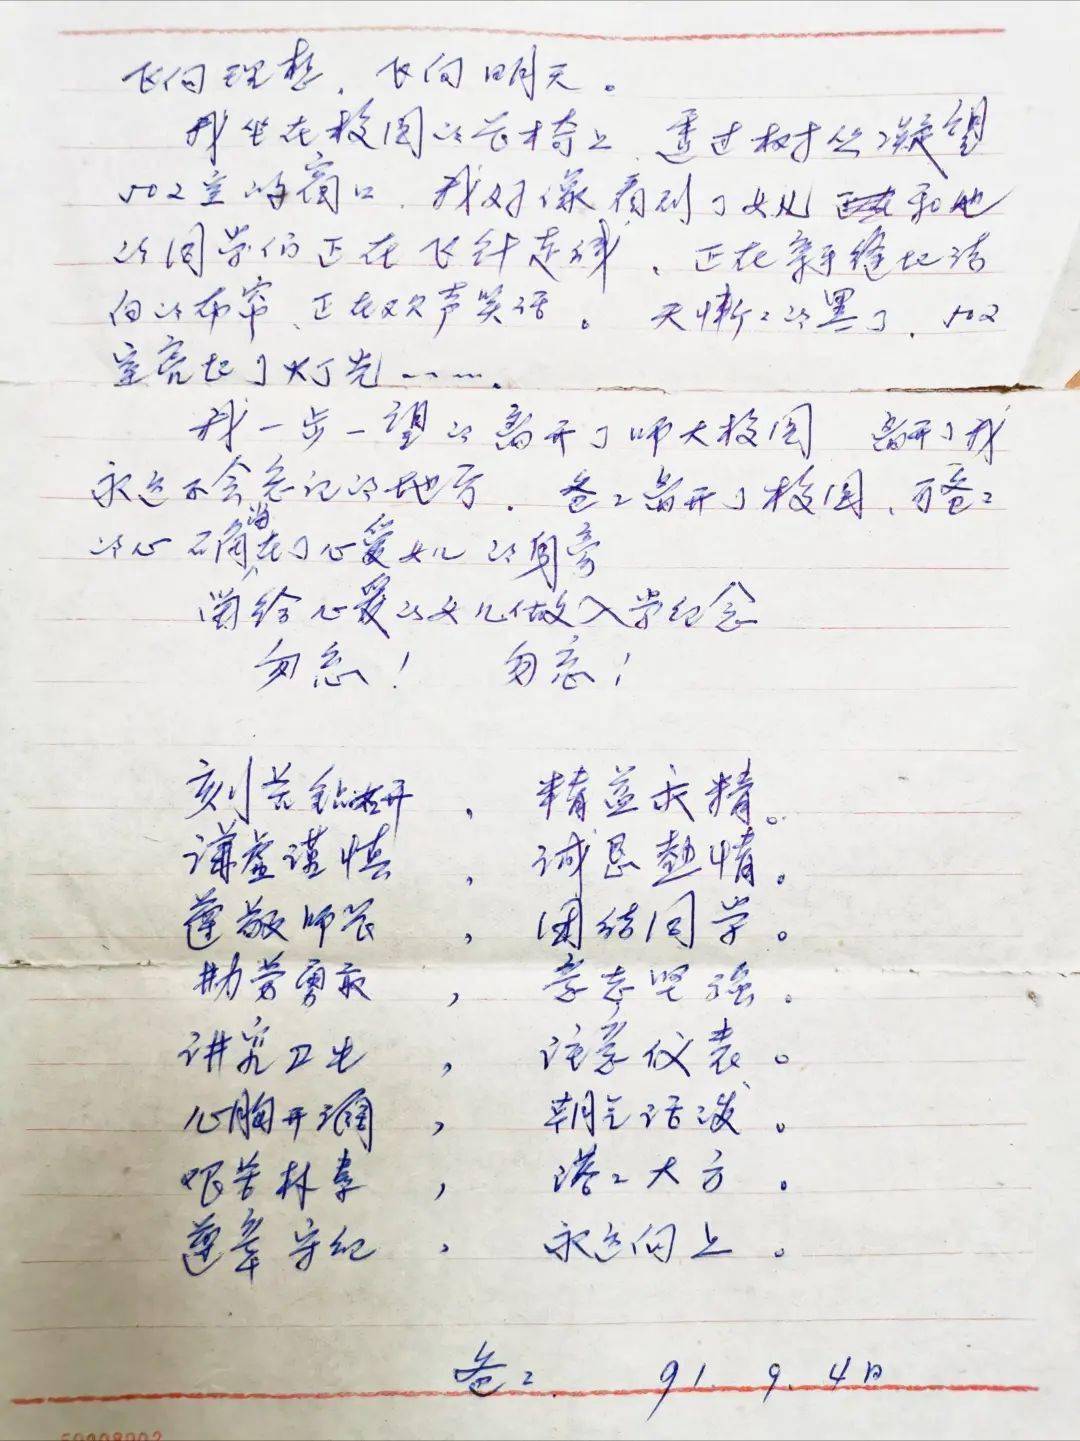 飞向理想，飞向明天。
我坐在校园的长椅上，透过树丛凝望
502室的窗口，我好像看到了女儿和她
的同学们正在飞针走线，正在新缝
的布帘，正在欢声笑语。天渐渐的黑了，502
室亮起了灯光……。
我一步一望的离开了师大校园 离开了我
永远不会忘记的地方。爸爸离开了校园，可爸爸
的心确留在了心爱女儿的身旁
留给心爱的女儿做入学纪念
勿忘！ 勿忘！
刻苦钻研，精益求精。
谦虚谨慎，诚恳热情。
尊敬师长，团结同学。
勤劳勇敢，意志坚强。
讲究卫生，注意仪表。
心胸开阔，朝气活泼。
艰苦朴素，落落大方。
遵章守纪，永远向上。
爸爸 91.9.4日
50208902